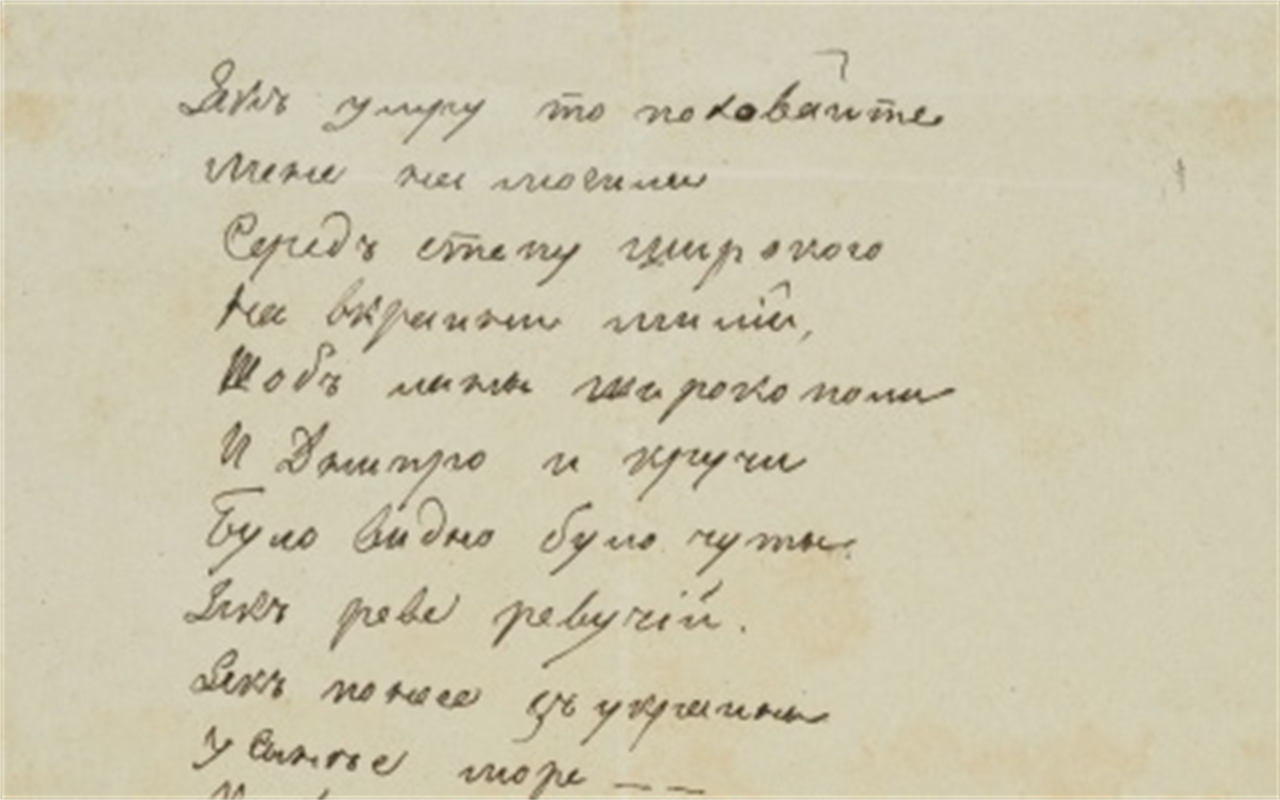 Якъ умру то поховайте
Мене на могили
Середъ степу широкого
На вкраини милій,
Щобъ ланы широкополи
И Днипро и кручи
Було видно було чуты.
Якъ реве ревучій.
Якъ понесе зъ украины
У синѣе море ---